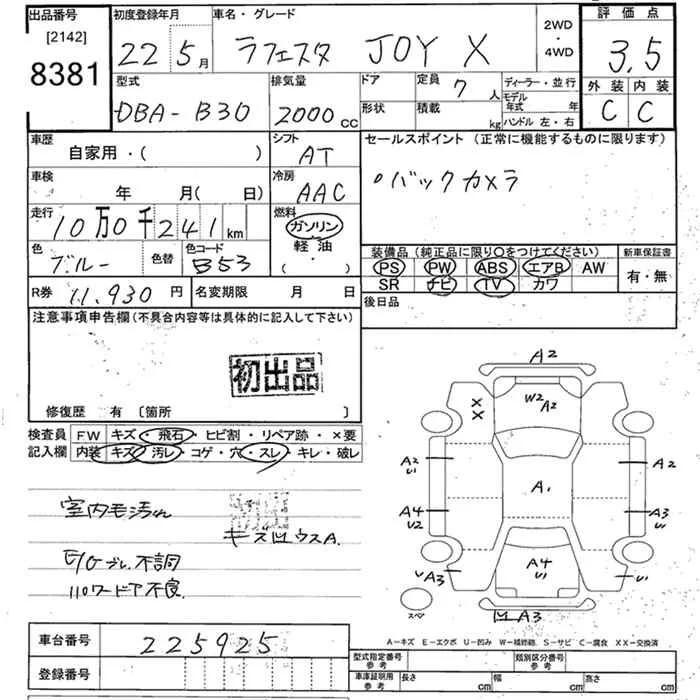 出品番号 初度登録年月 車名・グレード 2WD・4WD 評価点
[2142]
8381
22 5月 ラフェスタ JOY X 3.5
型式 排気量 ドア 定員 7人 ディーラー・並行 外装 内装
DBA-B30 2000cc 形状 積載 kg モデル年式 年 C C
ハンドル 左・右
車歴 シフト セールスポイント (正常に機能するものに限ります)
自家用・( ) AT
車検 冷房 バックカメラ
年 月( 日) AAC
走行 燃料
10万0千241km ガソリン
軽油
・( )
色 色替 色コード 装備品 (純正品に限り○をつけてください) 新車保証書
ブルー B53 PS PW ABS エアB AW 有・無
SR ナビ TV カワ
R券 11,930円 名変期限 月 日 後日品
注意事項申告欄 (不具合内容等は具体的に記入して下さい)
初出品
修復歴 有 〔箇所 〕
検査員 FW キズ・飛石・ヒビ割・リペア跡・×要
記入欄 内装 キズ・汚レ・コゲ・穴・スレ・キレ・破レ
室内モ汚れ
E/Gブレ.不調
A2
W2 A2
X
X
A2 U1 A2
A1
A4 U2 A3 U1
A3 A4 U1 U1
スペア
凹 A3
A-キズ E-エクボ U-凹み W-補修跡 S-サビ C-腐食 XX-交換済
車台番号 225925
登録番号
型式指定番号 参考 類別区分番号 参考
車庫証明用 参考 長さ cm 幅 cm 高さ cm